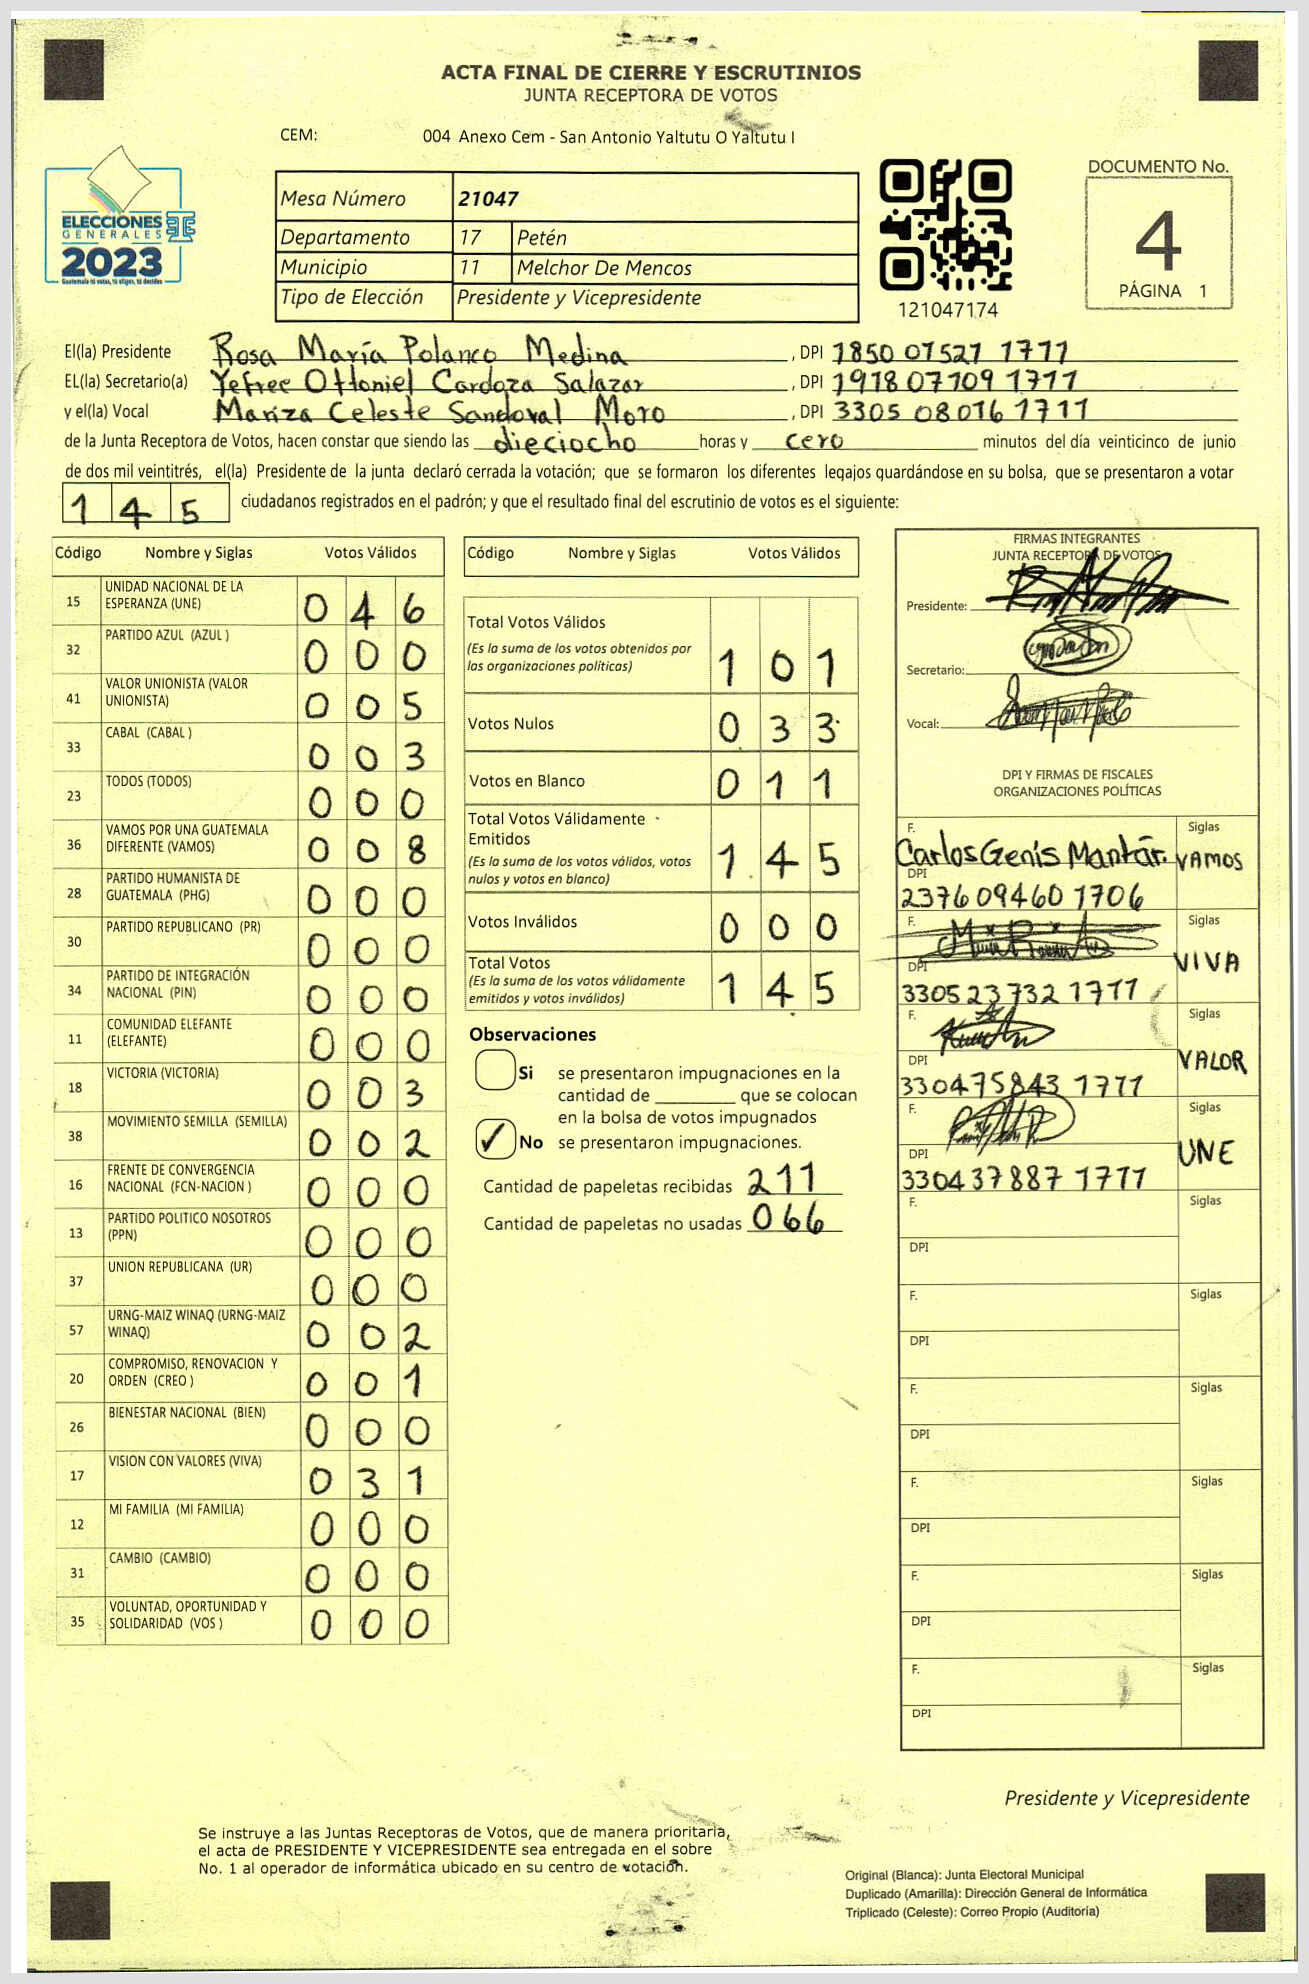 ACTA FINAL DE CIERRE Y ESCRUTINIOS
JUNTA RECEPTORA DE VOTOS
CEM: 004 Anexo Cem - San Antonio Yaltutu O Yaltutu I
ELECCIONES
GENERALES
2023
Guatemala tú votas, tú eliges, tú decides
Mesa Número 21047
Departamento 17 Petén
Municipio 11 Melchor De Mencos
Tipo de Elección Presidente y Vicepresidente
121047174
DOCUMENTO No.
4
PÁGINA 1
El(la) Presidente Rosa María Polanco Medina, DPI 1850 07527 1711
EL(la) Secretario(a) Yefree Ottoniel Cardoza Salazar, DPI 1918 07109 1711
y el(la) Vocal Mariza Celeste Sandoval Moro, DPI 3305 08016 1711
de la Junta Receptora de Votos, hacen constar que siendo las dieciocho horas y cero minutos del día veinticinco de junio
de dos mil veintitrés, el(la) Presidente de la junta declaró cerrada la votación; que se formaron los diferentes legajos quardándose en su bolsa, que se presentaron a votar
145 ciudadanos registrados en el padrón; y que el resultado final del escrutinio de votos es el siguiente:
Código Nombre y Siglas Votos Válidos
15 UNIDAD NACIONAL DE LA ESPERANZA (UNE) 046
32 PARTIDO AZUL (AZUL ) 000
41 VALOR UNIONISTA (VALOR UNIONISTA) 005
33 CABAL (CABAL ) 003
23 TODOS (TODOS) 000
36 VAMOS POR UNA GUATEMALA DIFERENTE (VAMOS) 008
28 PARTIDO HUMANISTA DE GUATEMALA (PHG) 000
30 PARTIDO REPUBLICANO (PR) 000
34 PARTIDO DE INTEGRACIÓN NACIONAL (PIN) 000
11 COMUNIDAD ELEFANTE (ELEFANTE) 000
18 VICTORIA (VICTORIA) 003
38 MOVIMIENTO SEMILLA (SEMILLA) 002
16 FRENTE DE CONVERGENCIA NACIONAL (FCN-NACION ) 000
13 PARTIDO POLITICO NOSOTROS (PPN) 000
37 UNION REPUBLICANA (UR) 000
57 URNG-MAIZ WINAQ (URNG-MAIZ WINAQ) 002
20 COMPROMISO, RENOVACION Y ORDEN (CREO ) 001
26 BIENESTAR NACIONAL (BIEN) 000
17 VISION CON VALORES (VIVA) 031
12 MI FAMILIA (MI FAMILIA) 000
31 CAMBIO (CAMBIO) 000
35 VOLUNTAD, OPORTUNIDAD Y SOLIDARIDAD (VOS ) 000
Código Nombre y Siglas Votos Válidos
Total Votos Válidos
(Es la suma de los votos obtenidos por
las organizaciones políticas) 101
Votos Nulos 033
Votos en Blanco 011
Total Votos Válidamente
Emitidos
(Es la suma de los votos válidos, votos
nulos y votos en blanco) 145
Votos Inválidos 000
Total Votos
(Es la suma de los votos válidamente
emitidos y votos inválidos) 145
Observaciones
Si se presentaron impugnaciones en la
cantidad de ________ que se colocan
en la bolsa de votos impugnados
✓ No se presentaron impugnaciones.
Cantidad de papeletas recibidas 211
Cantidad de papeletas no usadas 066
FIRMAS INTEGRANTES
JUNTA RECEPTORA DE VOTOS
Presidente:
Secretario:
Vocal:
DPI Y FIRMAS DE FISCALES
ORGANIZACIONES POLÍTICAS
F. Carlos Genis Mantar. Siglas VAMOS
DPI 2376 09460 1706
F. Siglas VIVA
DPI 330523732 1711
F. Siglas VALOR
DPI 330475843 1711
F. Siglas UNE
DPI 330437887 1711
F. Siglas
DPI
F. Siglas
DPI
F. Siglas
DPI
F. Siglas
DPI
F. Siglas
DPI
F. Siglas
DPI
Presidente y Vicepresidente
Se instruye a las Juntas Receptoras de Votos, que de manera prioritaria,
el acta de PRESIDENTE Y VICEPRESIDENTE sea entregada en el sobre
No. 1 al operador de informática ubicado en su centro de votación.
Original (Blanca): Junta Electoral Municipal
Duplicado (Amarilla): Dirección General de Informática
Triplicado (Celeste): Correo Propio (Auditoría)